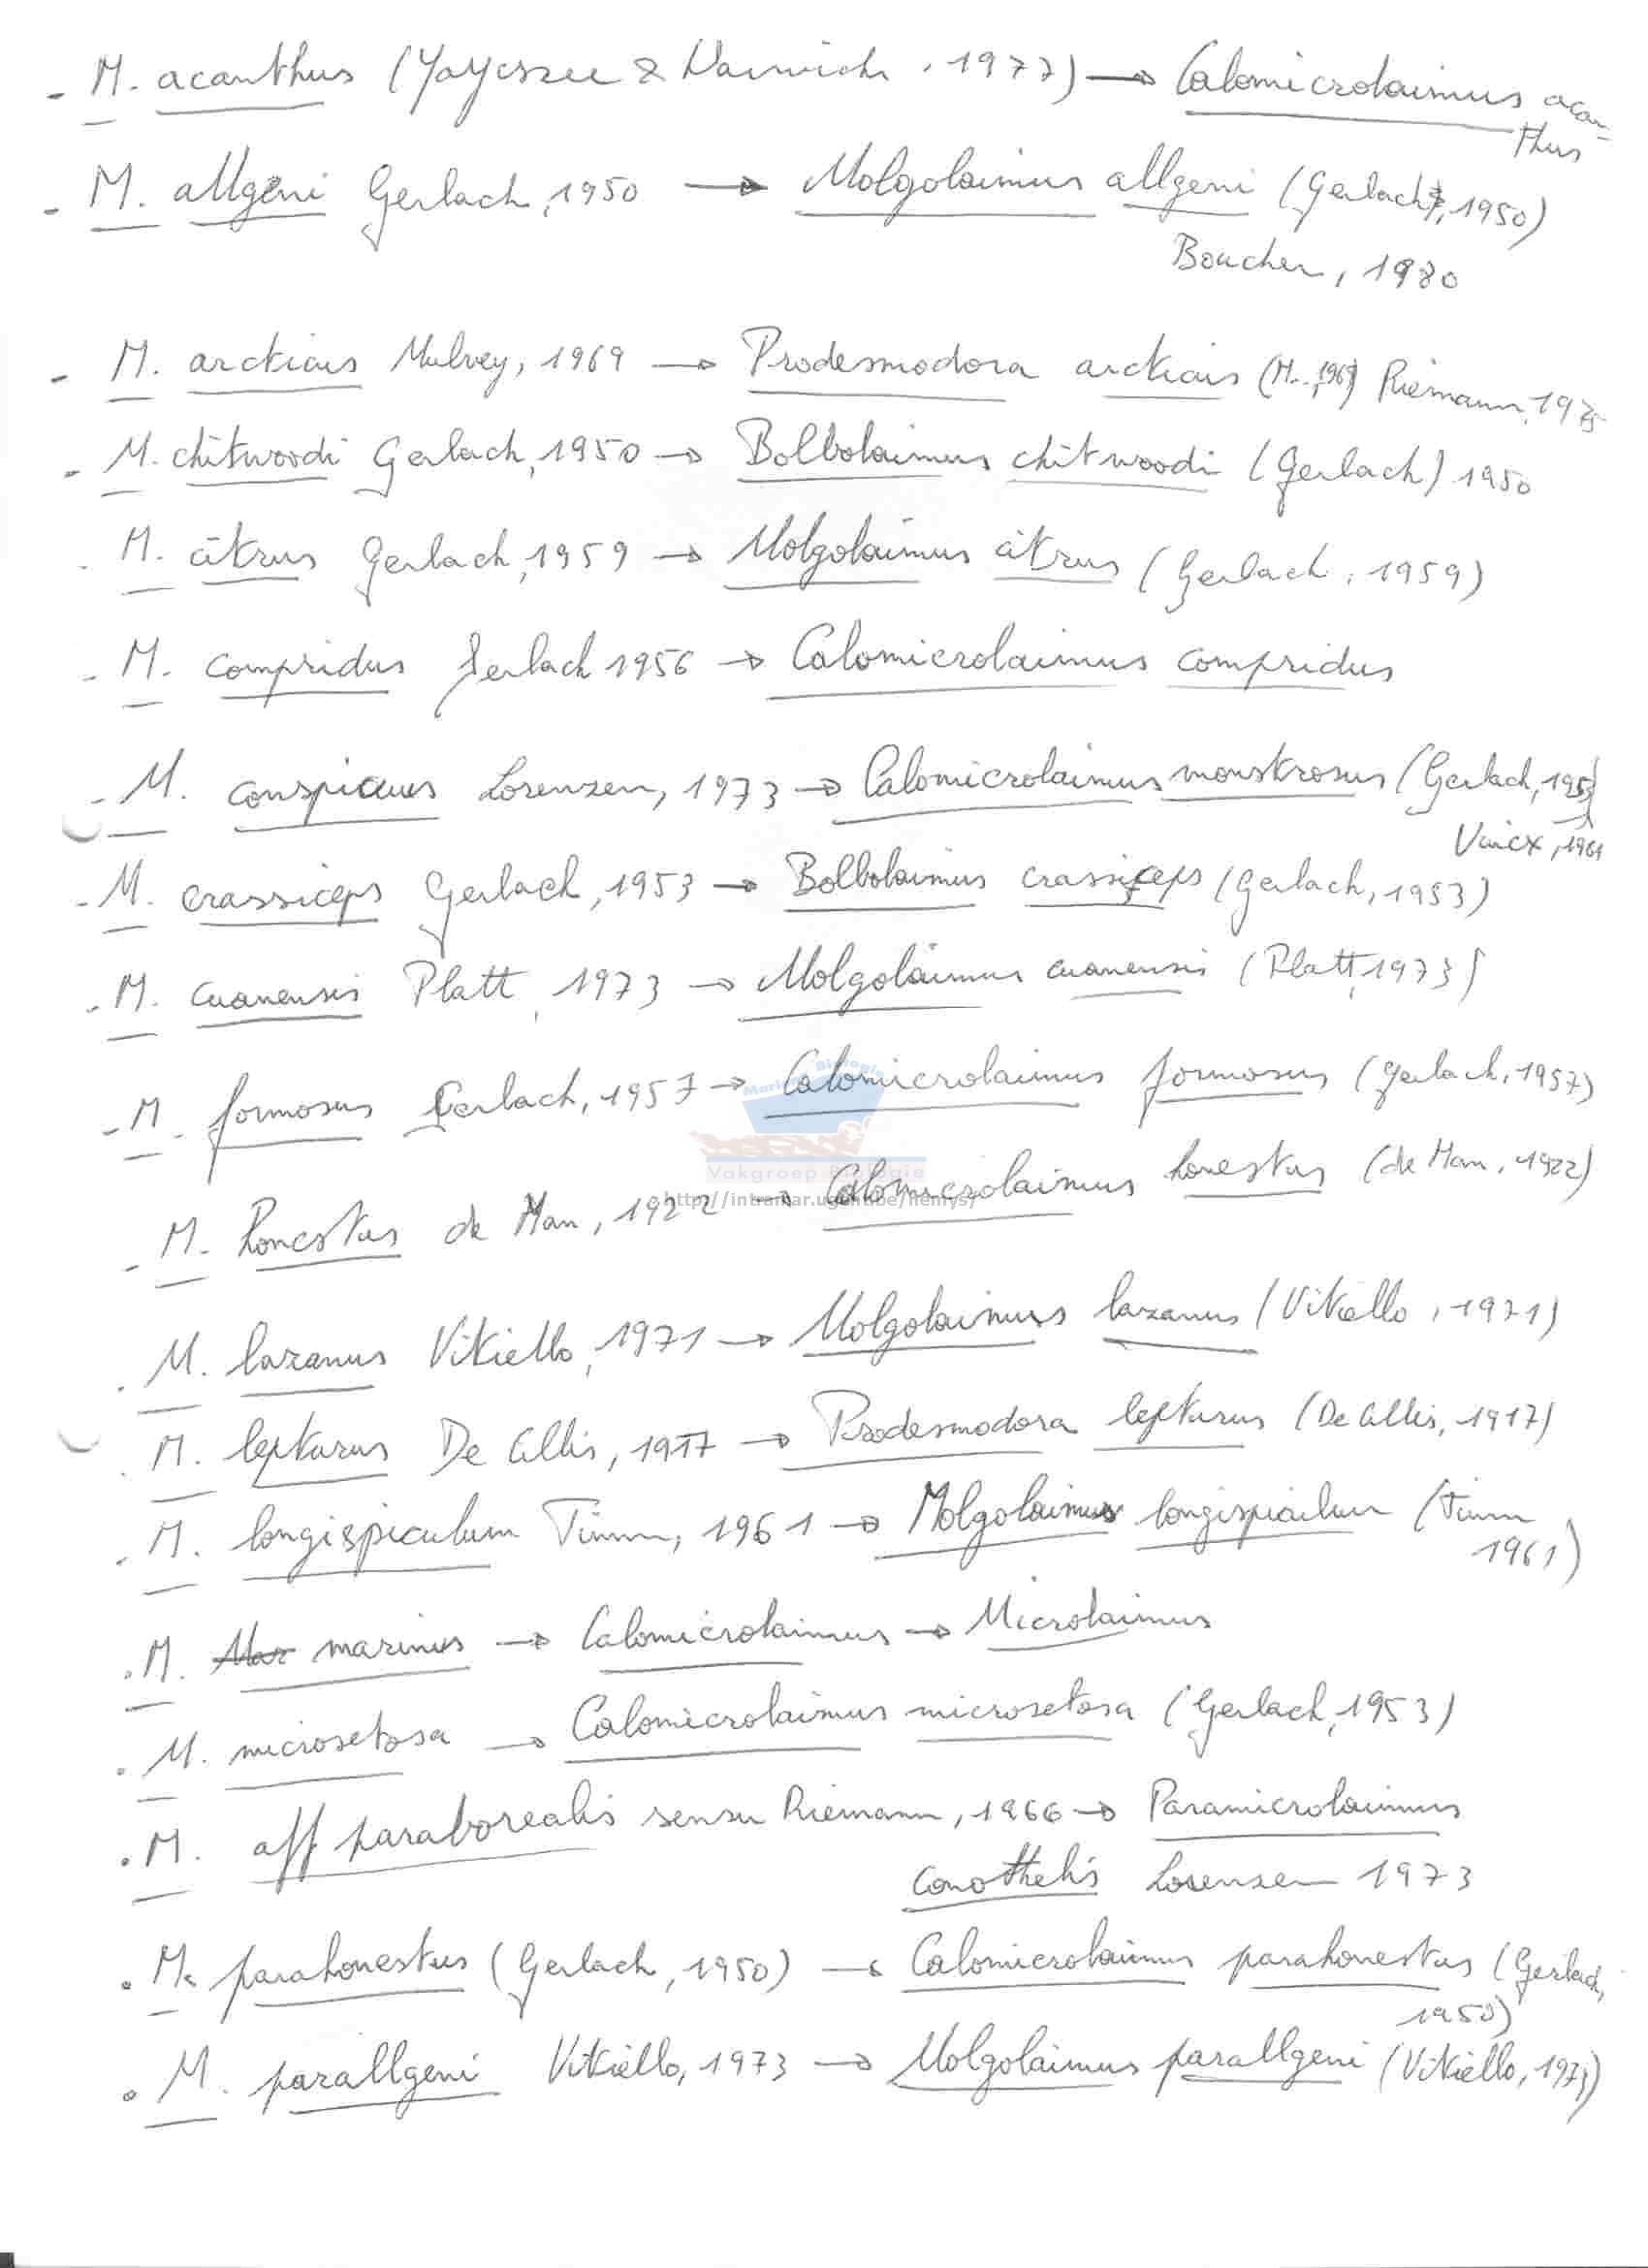 - M. acanthus (Jayesree & Warwick, 1977) → Calomicrolaimus acan-
thus
- M. allgeni Gerlach, 1950 → Molgolaimus allgeni (Gerlach, 1950)
Boucher, 1980
- M. arcticus Mulvey, 1969 → Prodesmodora arcticus (M.., 1969) Riemann, 1975
- M. chitwoodi Gerlach, 1950 → Bolbolaimus chitwoodi (Gerlach) 1950
- M. citrus Gerlach, 1959 → Molgolaimus citrus (Gerlach, 1959)
- M. compridus Gerlach 1956 → Calomicrolaimus compridus
- M. conspicuus Lorenzen, 1973 → Calomicrolaimus monstrosus (Gerlach, 1953)
Vincx, 1981
- M. crassiceps Gerlach, 1953 → Bolbolaimus crassiceps (Gerlach, 1953)
- M. cuanensis Platt, 1973 → Molgolaimus cuanensis (Platt, 1973)
- M. formosus Gerlach, 1957 → Calomicrolaimus formosus (Gerlach, 1957)
Marine Biologie
Vakgroep Biologie
http://intramar.ugent.be/nemys/
- M. honestus de Man, 1922 → Calomicrolaimus honestus (de Man, 1922)
. M. lazanus Vitiello, 1971 → Molgolaimus lazanus (Vitiello, 1971)
. M. lepturus De Cillis, 1917 → Prodesmodora lepturus (De Cillis, 1917)
. M. longispiculum Timm, 1961 → Molgolaimus longispiculum (Timm
1961)
. M. Mar marinus → Calomicrolaimus → Microlaimus
. M. microsetosa → Calomicrolaimus microsetosa (Gerlach, 1953)
. M. aff paraborealis sensu Riemann, 1966 → Paramicrolaimus
conothelis Lorenzen 1973
. M. parahonestus (Gerlach, 1950) → Calomicrolaimus parahonestus (Gerlach,
1950)
. M. parallgeni Vitiello, 1973 → Molgolaimus parallgeni (Vitiello, 1973)